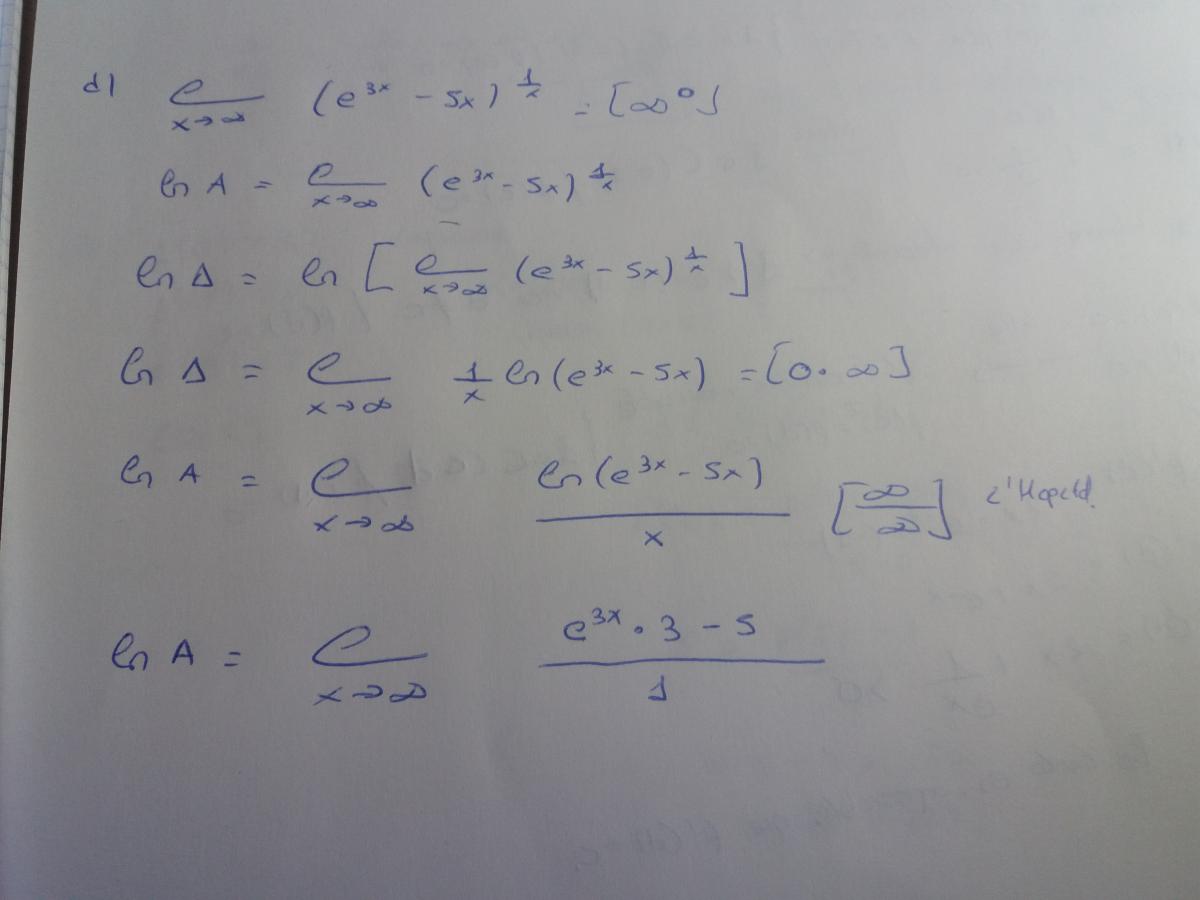 d) ℓ x→∞ (e^{3x} - 5x)^{1/x} = [∞^0]
ln A = ℓ x→∞ (e^{3x} - 5x)^{1/x}
ln A = ln [ ℓ x→∞ (e^{3x} - 5x)^{1/x} ]
ln A = ℓ x→∞ 1/x ln(e^{3x} - 5x) = [0·∞]
ln A = ℓ x→∞ ln(e^{3x} - 5x) / x [∞/∞] L'Hopital.
ln A = ℓ x→∞ e^{3x}·3 - 5 / 1